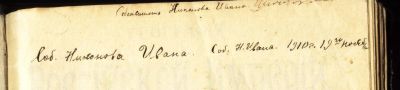 Собственность Никонова Ивана
Соб. Никонова Ивана. Соб. Н. Ивана. 1910 г. 19го нояб.